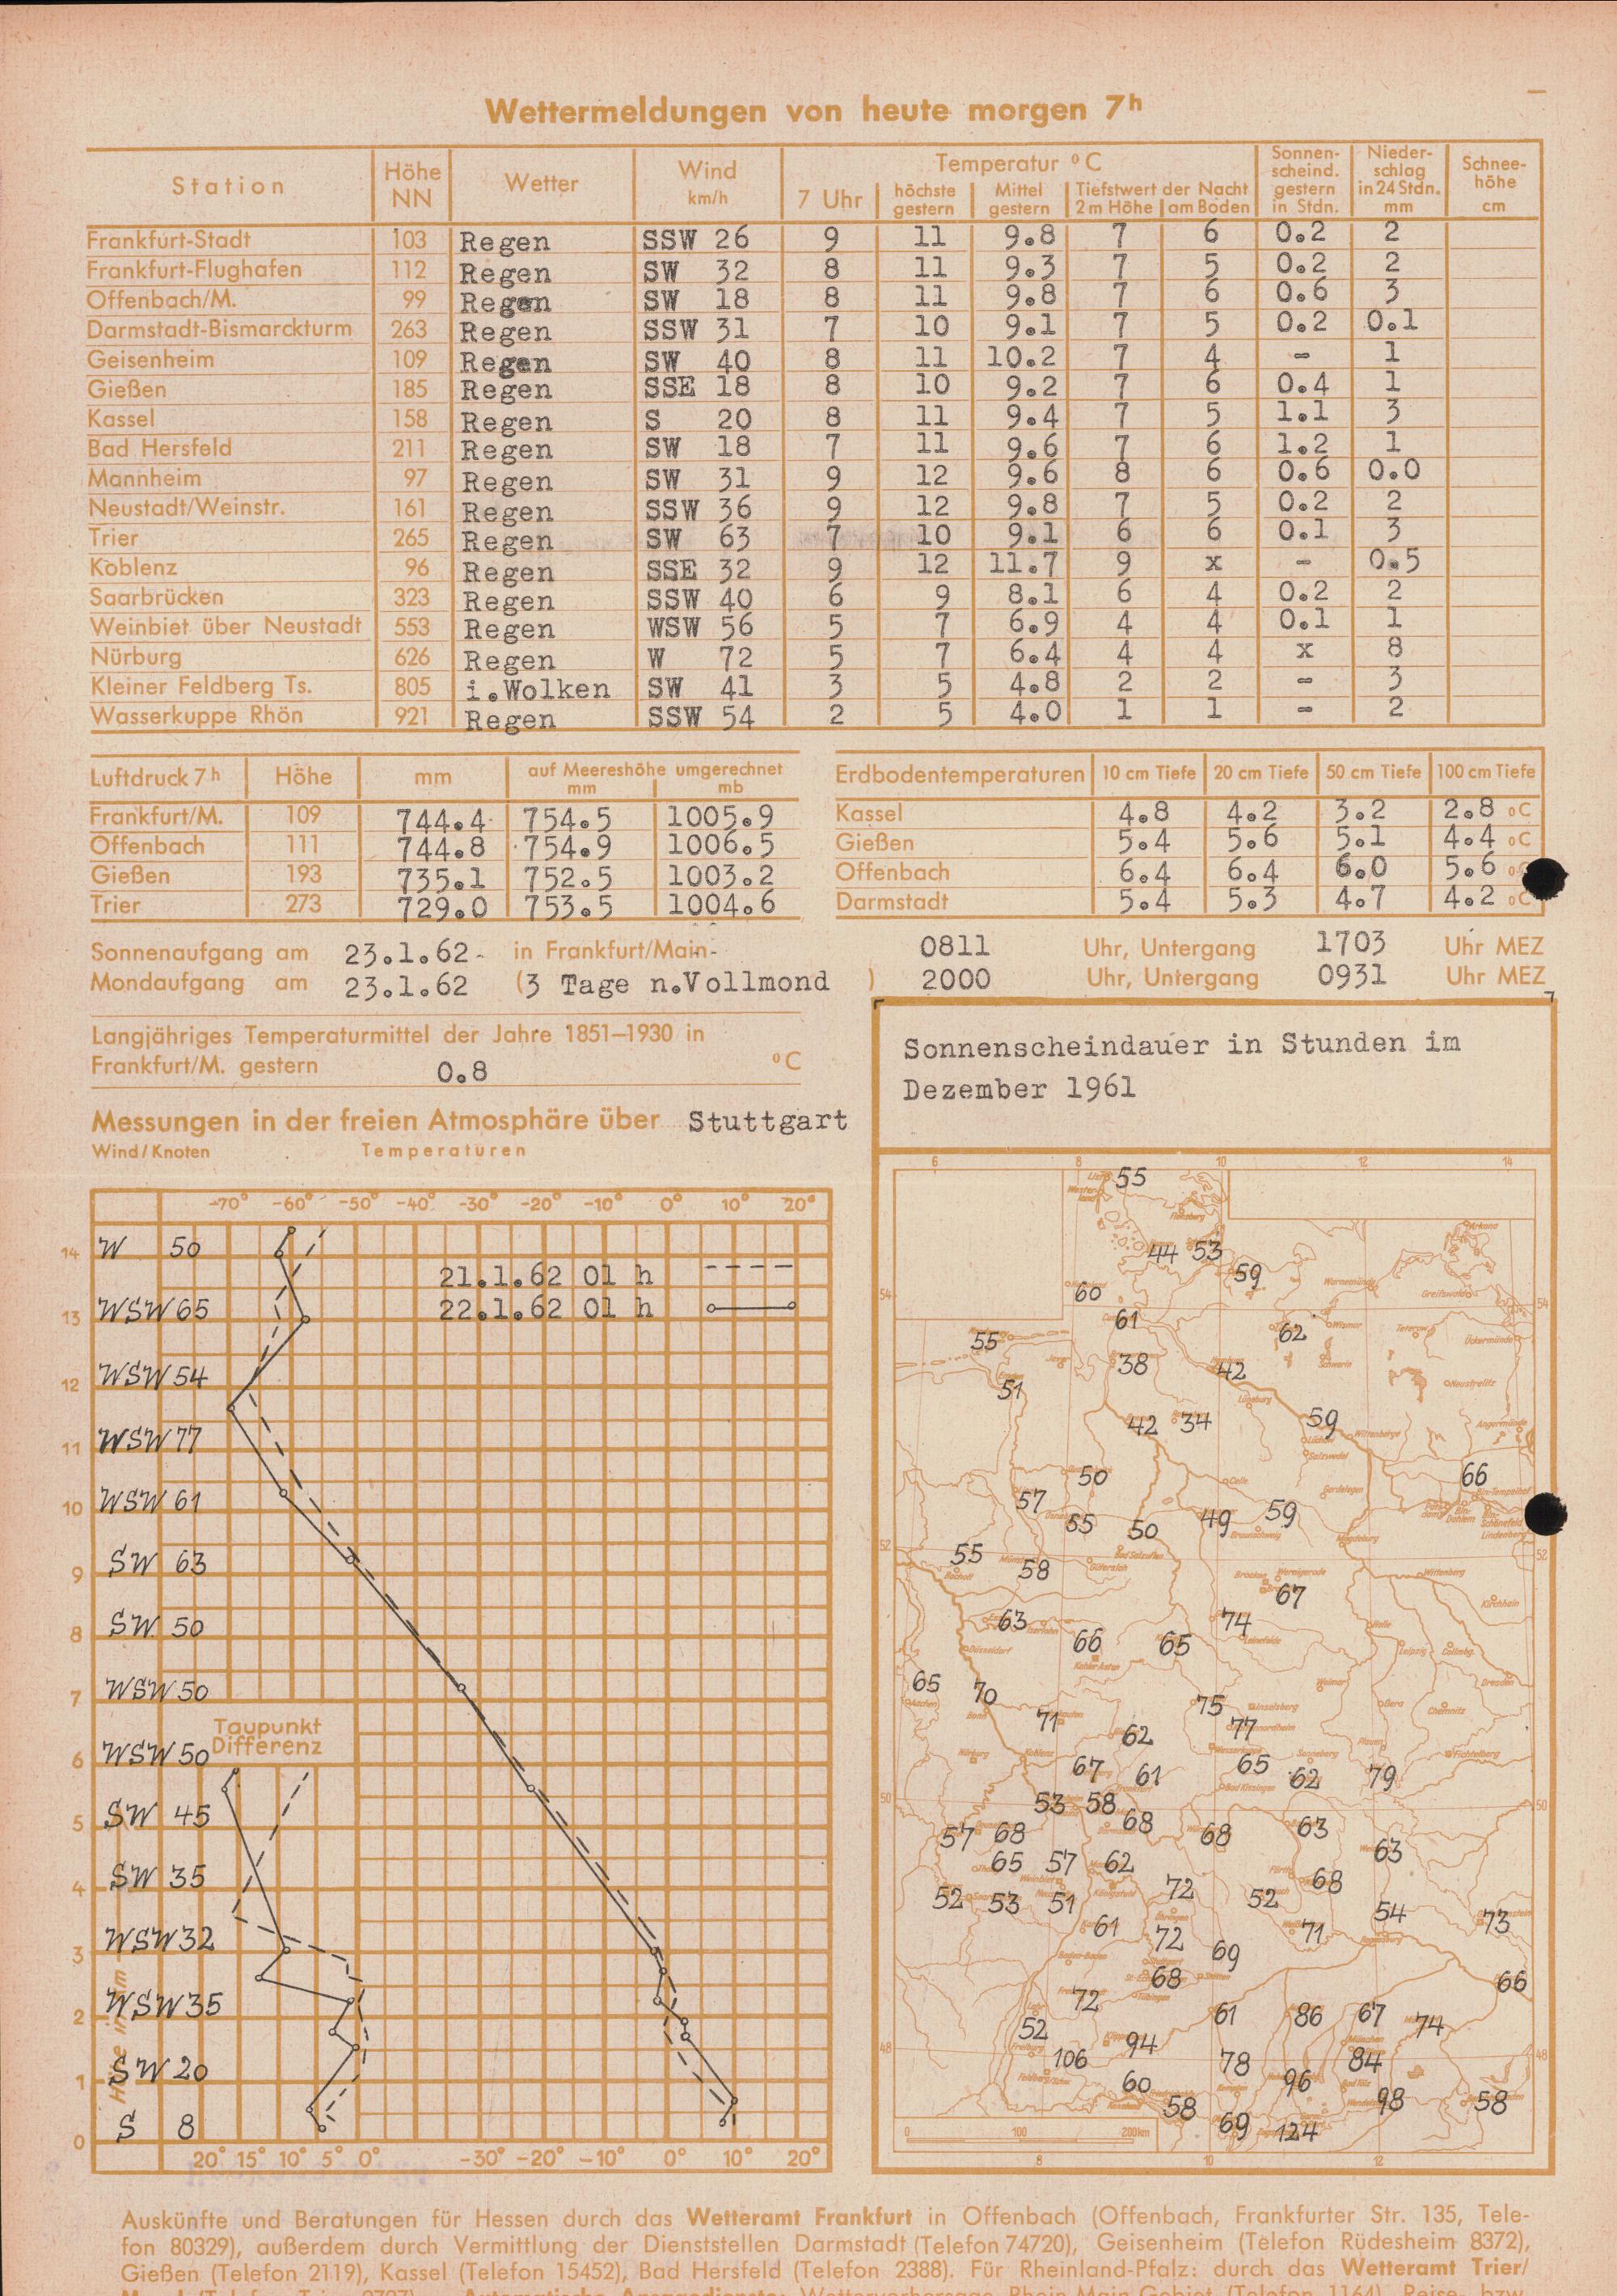 Wettermeldungen von heute morgen 7h
Station Höhe NN Wetter Wind km/h Temperatur °C Sonnen-scheind. gestern in Stdn. Nieder-schlag in 24 Stdn. mm Schnee-höhe cm
7 Uhr höchste gestern Mittel gestern Tiefstwert der Nacht 2 m Höhe am Boden
Frankfurt-Stadt 103 Regen SSW 26 9 11 9.8 7 6 0.2 2
Frankfurt-Flughafen 112 Regen SW 32 8 11 9.3 7 5 0.2 2
Offenbach/M. 99 Regen SW 18 8 11 9.8 7 6 0.6 3
Darmstadt-Bismarckturm 263 Regen SSW 31 7 10 9.1 7 5 0.2 0.1
Geisenheim 109 Regen SW 40 8 11 10.2 7 4 - 1
Gießen 185 Regen SSE 18 8 10 9.2 7 6 0.4 1
Kassel 158 Regen S 20 8 11 9.4 7 5 1.1 3
Bad Hersfeld 211 Regen SW 18 7 11 9.6 7 6 1.2 1
Mannheim 97 Regen SW 31 9 12 9.6 8 6 0.6 0.0
Neustadt/Weinstr. 161 Regen SSW 36 9 12 9.8 7 5 0.2 2
Trier 265 Regen SW 63 7 10 9.1 6 6 0.1 3
Koblenz 96 Regen SSE 32 9 12 11.7 9 x - 0.5
Saarbrücken 323 Regen SSW 40 6 9 8.1 6 4 0.2 2
Weinbiet über Neustadt 553 Regen WSW 56 5 7 6.9 4 4 0.1 1
Nürburg 626 Regen W 72 5 7 6.4 4 4 x 8
Kleiner Feldberg Ts. 805 i.Wolken SW 41 3 5 4.8 2 2 - 3
Wasserkuppe Rhön 921 Regen SSW 54 2 5 4.0 1 1 - 2
Luftdruck 7h Höhe mm auf Meereshöhe umgerechnet mm mb
Frankfurt/M. 109 744.4 754.5 1005.9
Offenbach 111 744.8 754.9 1006.5
Gießen 193 735.1 752.5 1003.2
Trier 273 729.0 753.5 1004.6
Erdbodentemperaturen 10 cm Tiefe 20 cm Tiefe 50 cm Tiefe 100 cm Tiefe
Kassel 4.8 4.2 3.2 2.8 °C
Gießen 5.4 5.6 5.1 4.4 °C
Offenbach 6.4 6.4 6.0 5.6
Darmstadt 5.4 5.3 4.7 4.2 °C
Sonnenaufgang am 23.1.62 in Frankfurt/Main 0811 Uhr, Untergang 1703 Uhr MEZ
Mondaufgang am 23.1.62 (3 Tage n.Vollmond ) 2000 Uhr, Untergang 0931 Uhr MEZ
Langjähriges Temperaturmittel der Jahre 1851–1930 in
Frankfurt/M. gestern 0.8 °C
Messungen in der freien Atmosphäre über Stuttgart
Wind/Knoten Temperaturen
-70° -60° -50° -40° -30° -20° -10° 0° 10° 20°
14 W 50
21.1.62 01 h
22.1.62 01 h
13 WSW 65
12 WSW 54
11 WSW 77
10 WSW 61
9 SW 63
8 SW 50
7 WSW 50
Taupunkt
Differenz
6 WSW 50
5 SW 45
4 SW 35
3 WSW 32
2 WSW 35
1 SW 20
0 S 8
20° 15° 10° 5° 0° -30° -20° -10° 0° 10° 20°
Sonnenscheindauer in Stunden im
Dezember 1961
6 8 10 12 14
55
44 53
59
60
61
62
55
38 42
51
42 34 59
50 66
57
55 50 49 59
55 58
67
63 74
66 65
65 70 75
71 77
62
67 61 65 62 79
53 58
57 68 68 68 63
63
65 57 62
68
52 53 51 72 52
54 73
61 72 71
69
68 66
72 61 86 67 74
52
94
106 78 84
60 96
58 98 58
69 124
0 100 200km
8 10 12
Auskünfte und Beratungen für Hessen durch das Wetteramt Frankfurt in Offenbach (Offenbach, Frankfurter Str. 135, Tele-
fon 80329), außerdem durch Vermittlung der Dienststellen Darmstadt (Telefon 74720), Geisenheim (Telefon Rüdesheim 8372),
Gießen (Telefon 2119), Kassel (Telefon 15452), Bad Hersfeld (Telefon 2388). Für Rheinland-Pfalz: durch das Wetteramt Trier/